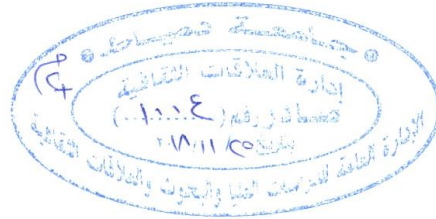 جامعة دمياط
إدارة العلاقات الثقافية
صادر رقم (١٠٠٠٤)
بتاريخ ٢٥/١١/٢٠١٨
الإدارة العامة للدراسات العليا والبحوث والعلاقات الثقافية